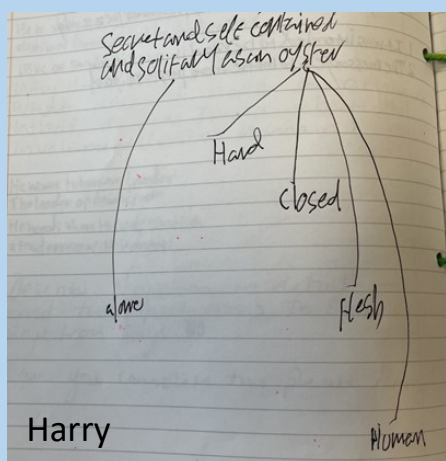 secret and self contained
and solitary as an oyster
Hard
Closed
alone
flesh
Human
Harry